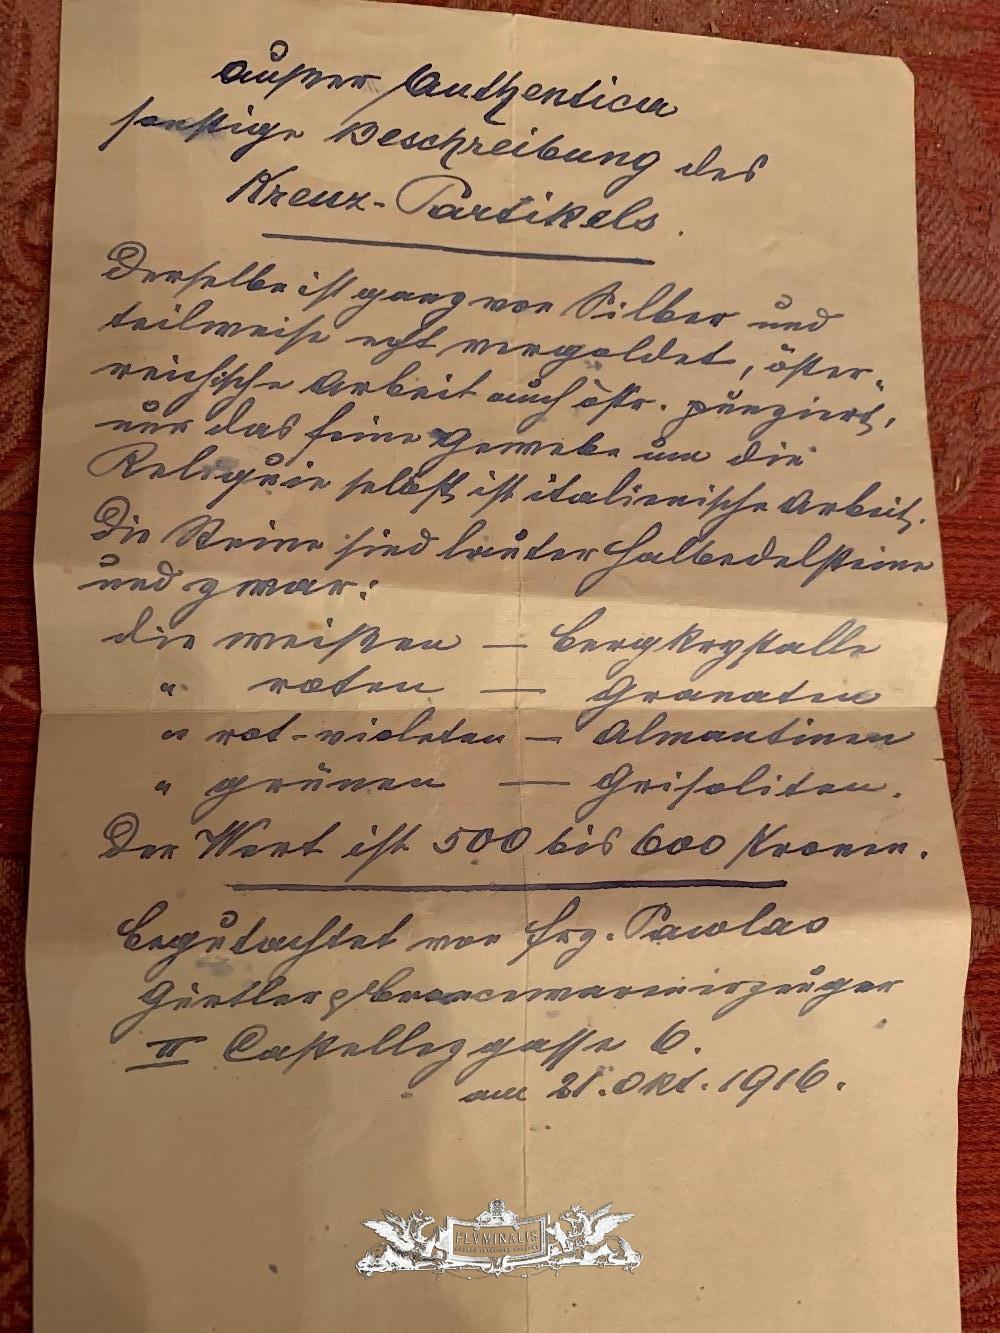 Außer Authentica
sonstige Beschreibung des
Kreuz-Partikels.
Derselbe ist ganz von Silber und
teilweise echt vergoldet, öster-
reichische Arbeit auch östr. punziert,
nur das feine Gewebe um die
Reliquie selbst ist italienische Arbeit.
Die Steine sind lauter Halbedelsteine
und zwar:
die weißen — Bergkrystalle
" roten — Granaten
" rot-violeten — Almantinen
" grünen — Grisoliten.
Der Wert ist 500 bis 600 Kronen.
Begutachtet von Frz.
Gürtler & Broncewarenerzeuger
II Castellezgasse 6.
am 21. Okt. 1916.
FLVMINALIS